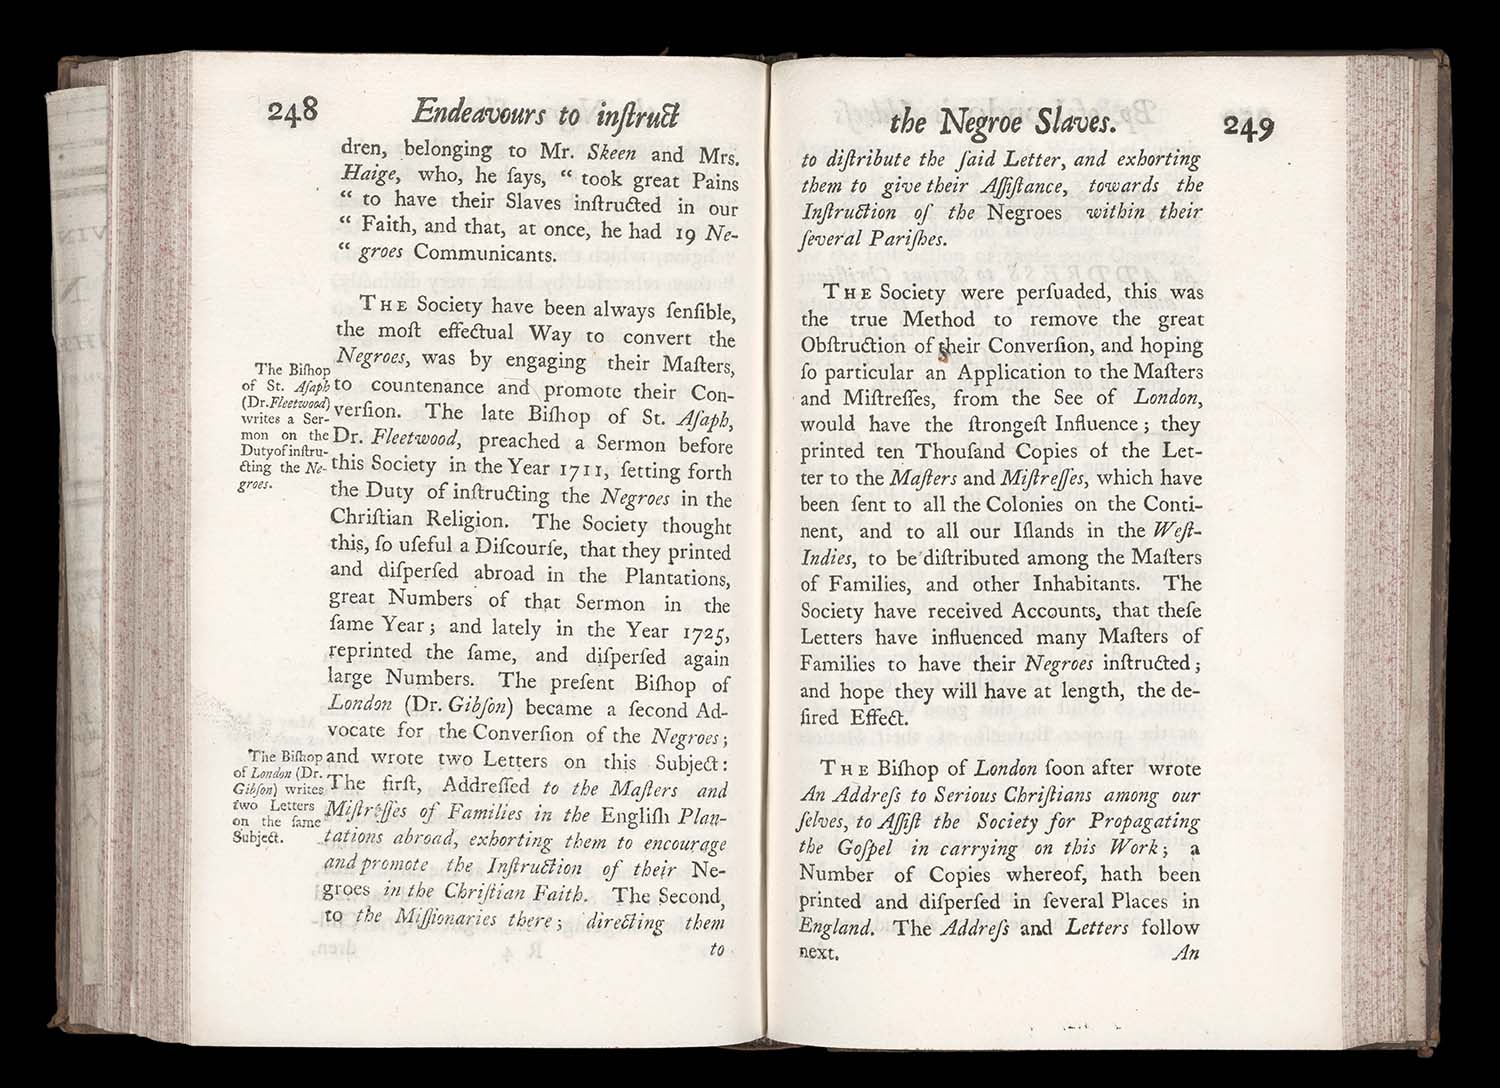 248 Endeavours to inſtruct
dren, belonging to Mr. Skeen and Mrs.
Haige, who, he ſays, “ took great Pains
“ to have their Slaves inſtructed in our
“ Faith, and that, at once, he had 19 Ne-
“ groes Communicants.
THE Society have been always ſenſible,
the moſt effectual Way to convert the
Negroes, was by engaging their Maſters,
to countenance and promote their Con-
verſion. The late Biſhop of St. Aſaph,
Dr. Fleetwood, preached a Sermon before
this Society in the Year 1711, ſetting forth
the Duty of inſtructing the Negroes in the
Chriſtian Religion. The Society thought
this, ſo uſeful a Diſcourſe, that they printed
and diſperſed abroad in the Plantations,
great Numbers of that Sermon in the
ſame Year; and lately in the Year 1725,
reprinted the ſame, and diſperſed again
large Numbers. The preſent Biſhop of
London (Dr. Gibſon) became a ſecond Ad-
vocate for the Converſion of the Negroes;
and wrote two Letters on this Subject:
The firſt, Addreſſed to the Maſters and
Miſtreſſes of Families in the Engliſh Plan-
tations abroad, exhorting them to encourage
and promote the Inſtruction of their Ne-
groes in the Chriſtian Faith. The Second,
to the Miſſionaries there; directing them
to
The Biſhop
of St. Aſaph
(Dr. Fleetwood)
writes a Ser-
mon on the
Duty of inſtru-
cting the Ne-
groes.
The Biſhop
of London (Dr.
Gibſon) writes
two Letters
on the ſame
Subject.
the Negroe Slaves. 249
to diſtribute the ſaid Letter, and exhorting
them to give their Aſſiſtance, towards the
Inſtruction of the Negroes within their
ſeveral Pariſhes.
THE Society were perſuaded, this was
the true Method to remove the great
Obſtruction of their Converſion, and hoping
ſo particular an Application to the Maſters
and Miſtreſſes, from the See of London,
would have the ſtrongeſt Influence; they
printed ten Thouſand Copies of the Let-
ter to the Maſters and Miſtreſſes, which have
been ſent to all the Colonies on the Conti-
nent, and to all our Iſlands in the Weſt-
Indies, to be diſtributed among the Maſters
of Families, and other Inhabitants. The
Society have received Accounts, that theſe
Letters have influenced many Maſters of
Families to have their Negroes inſtructed;
and hope they will have at length, the de-
ſired Effect.
THE Biſhop of London ſoon after wrote
An Addreſs to Serious Chriſtians among our
ſelves, to Aſſiſt the Society for Propagating
the Goſpel in carrying on this Work; a
Number of Copies whereof, hath been
printed and diſperſed in ſeveral Places in
England. The Addreſs and Letters follow
next. An